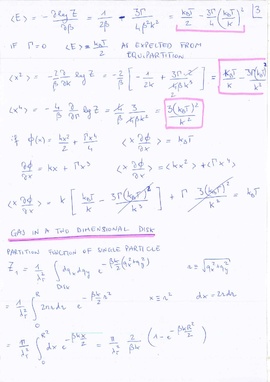 <E> = -∂logZ/∂β = 1/2β - 3Γ/4β²k² = kBT/2 - 3Γ/4 (kBT/k)² [3
IF Γ=0 <E> = kBT/2 AS EXPECTED FROM
EQUIPARTITION
<x²> = -2/β ∂/∂k log Z = -2/β [-1/2k + 3Γ·2/4βk³] = kBT/k - 3Γ(kBT)²/k³
<x⁴> = -4/β ∂/∂Γ log Z = 4/β 3/4βk² = 3(kBT)²/k²
if φ(x) = kx²/2 + Γx⁴/4 <x ∂φ/∂x> = kBT
∂φ/∂x = kx + Γx³ <x ∂φ/∂x> = <kx²> + <Γx⁴>
<x ∂φ/∂x> = k [kBT/k - 3Γ(kBT)²/k³] + Γ 3(kBT)²/k² = kBT
GAS IN A TWO DIMENSIONAL DISK
PARTITION FUNCTION OF SINGLE PARTICLE
Z₁ = 1/λT² ∫DISK dqx dqy e^(-βk/2 (qx²+qy²)) r = √(qx²+qy²)
= 1/λT² ∫₀^R 2πr dr e^(-βk/2 r²) x = r² dx = 2r dr
= π/λT² ∫₀^R² dx e^(-βkx/2) = π/λT² 2/βk (1 - e^(-βkR²/2))